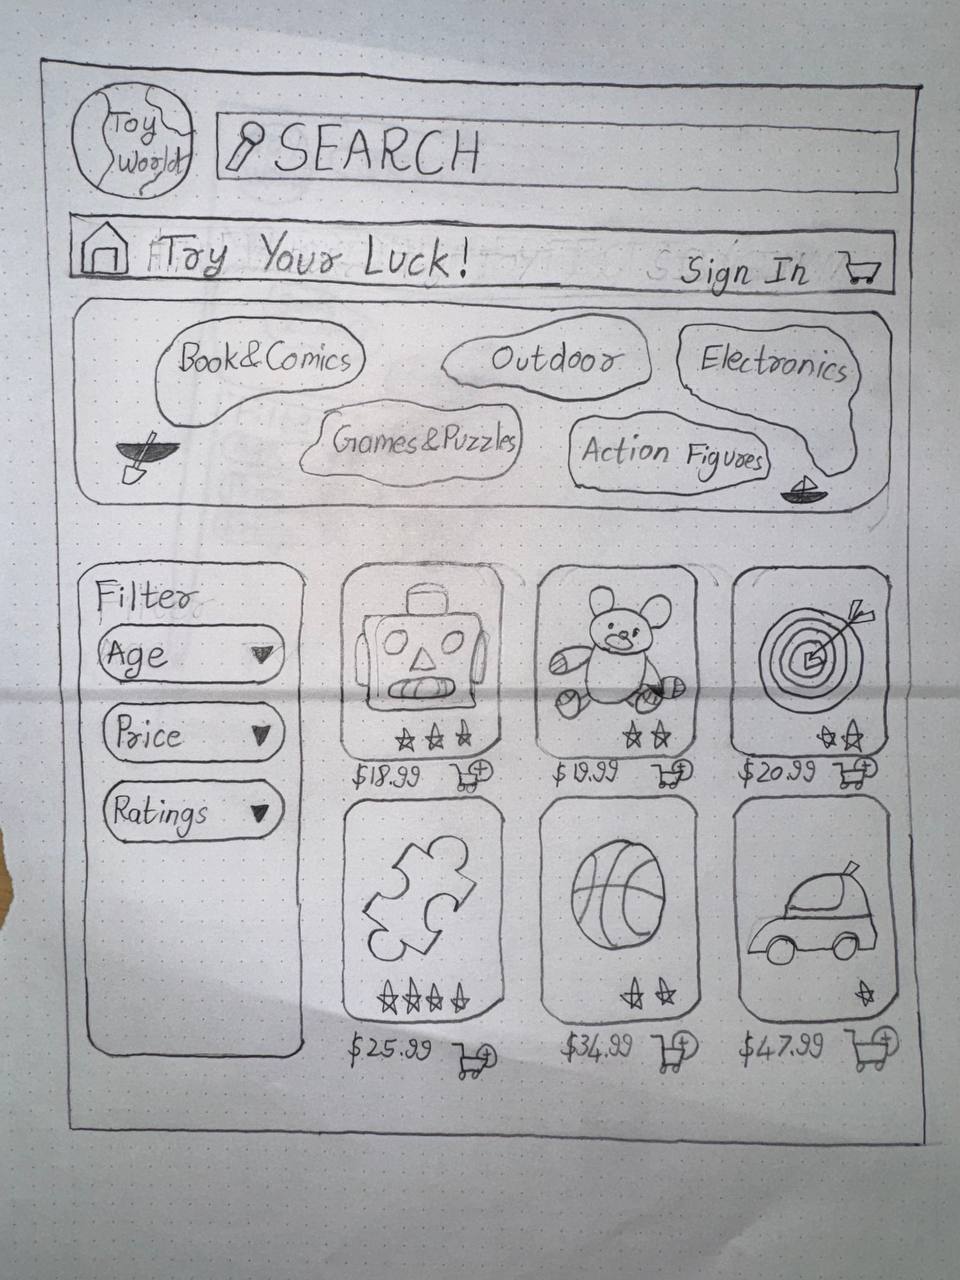 Toy
World
SEARCH
Try Your Luck!
Sign In
Book&Comics
Outdoor
Electronics
Games&Puzzles
Action Figures
Filter
Age
Price
Ratings
$18.99
$19.99
$20.99
$25.99
$34.99
$47.99